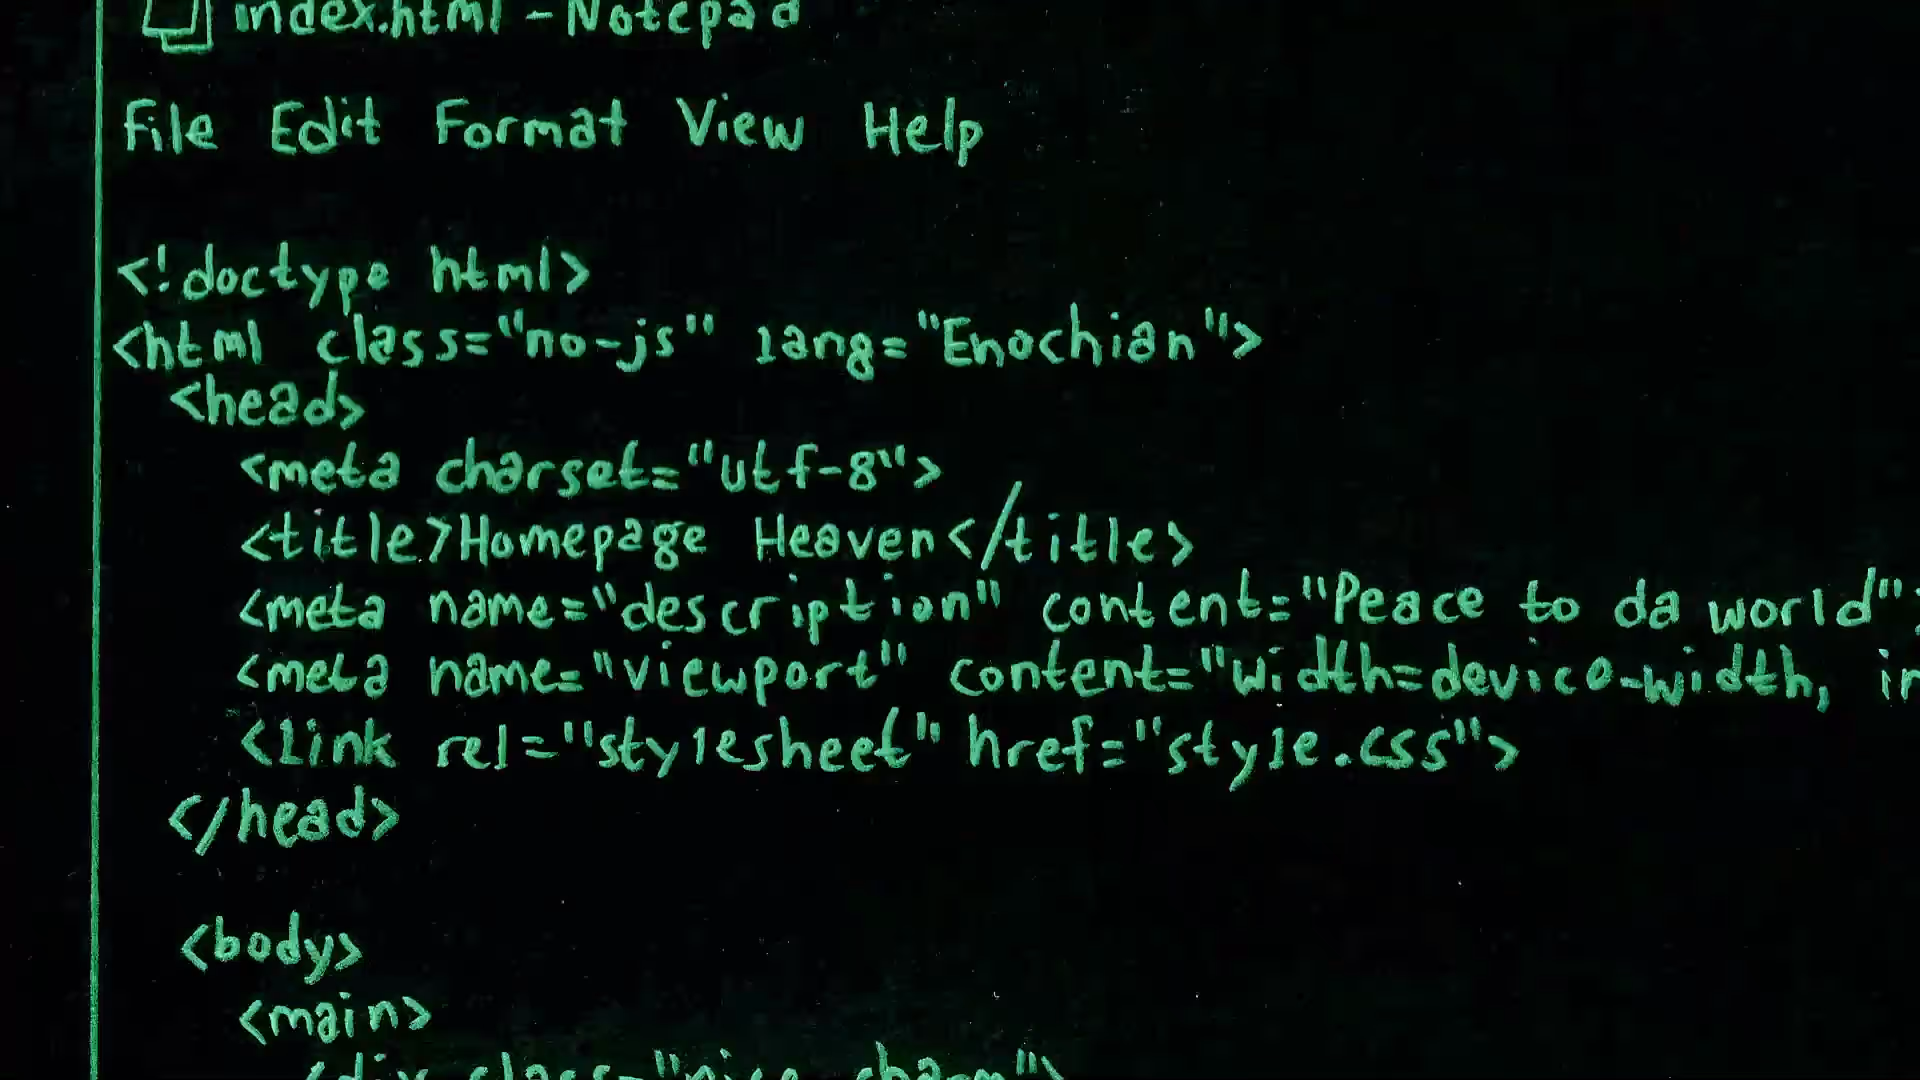 index.html - Notepad
File Edit Format View Help
<!doctype html>
<html class="no-js" lang="Enochian">
<head>
<meta charset="utf-8">
<title>Homepage Heaven</title>
<meta name="description" content="Peace to da world"
<meta name="viewport" content="width=device-width,
<link rel="stylesheet" href="style.css">
</head>
<body>
<main>
<div class="nice-charm">